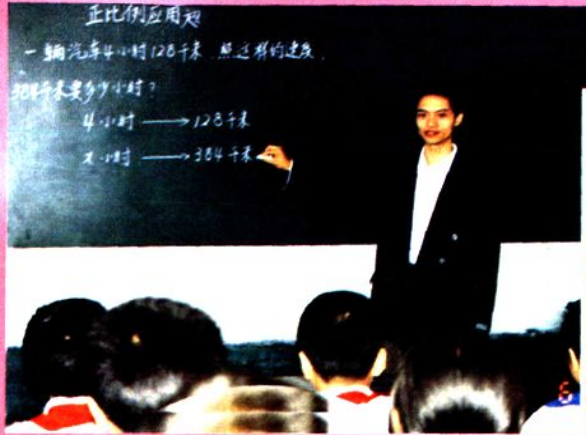 正比例应用题
一辆汽车4小时128千米 照这样的速度,
384千米要多少小时?
4小时 → 128千米
x小时 → 384千米
6